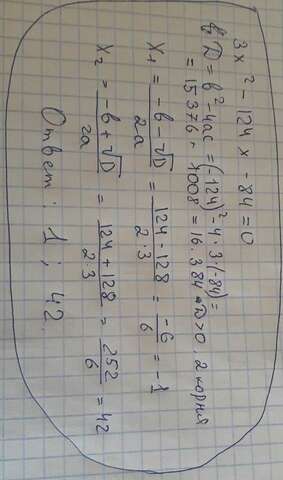 3x² - 124x - 84 = 0
б) D = b² - 4ac = (-124)² - 4·3·(-84) =
= 15376 + 1008 = 16.384 D>0, 2 корня
x₁ = (-b - √D)/2a = (124 - 128)/(2·3) = -6/6 = -1
x₂ = (-b + √D)/2a = (124 + 128)/(2·3) = 252/6 = 42
Ответ: 1; 42